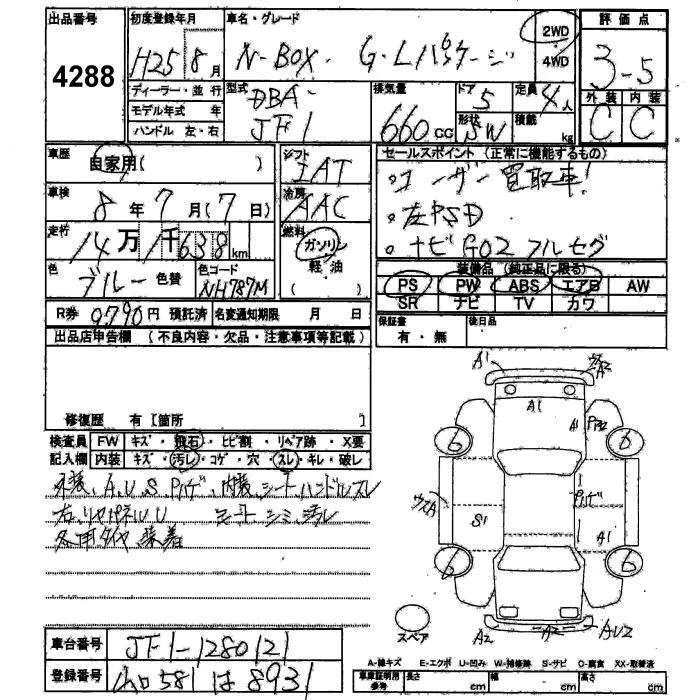 出品番号
4288
初度登録年月
H25 8月
車名・グレード
N-BOX. G・Lパッケージ
2WD・4WD
評価点
3-5
外装 内装
C C
ディーラー・並行
モデル年式 年
ハンドル 左・右
型式
DBA-
JF1
排気量
660 CC
ドア
5
形状
SW
定員
4人
積載
kg
車歴
自家用( )
車検
8年7月(7日)
走行
14万1千638km
色
ブルー 色替
色コード
NH787M
シフト
IAT
冷房
AAC
燃料
ガソリン
軽油
セールスポイント (正常に機能するもの)
。ユーザー買取車!
。左PSD
。ナビGO2フルセグ
装備品 (純正品に限る)
PS PW ABS エアB AW
SR ナビ TV カワ
R券 9790円 預託済
名変通知期限 月 日
保証書
有・無
後日品
出品店申告欄 (不良内容・欠品・注意事項等記載)
修復歴 有 [箇所 ]
検査員 FW キズ・飛石・ヒビ割・リペア跡・X要
記入欄 内装 キズ・汚レ・コゲ・穴・スレ・キレ・破レ
外装、A、U、S、ハゲ、内装、シートハンドルスレ
右リヤパネルU シートシミ汚レ
冬用タイヤ装着
A1
A2
A1
A1
6
6
ウスA
S1
ハゲ
A1
6
6
スペア
A2
A2
AU2
A-線キズ E-エクボ U-凹み W-補修跡 S-サビ C-腐食 XX-取替済
車庫証明用
参考
長さ cm
幅 cm
高さ cm
車台番号
JF1-1280121
登録番号
581 は 8931